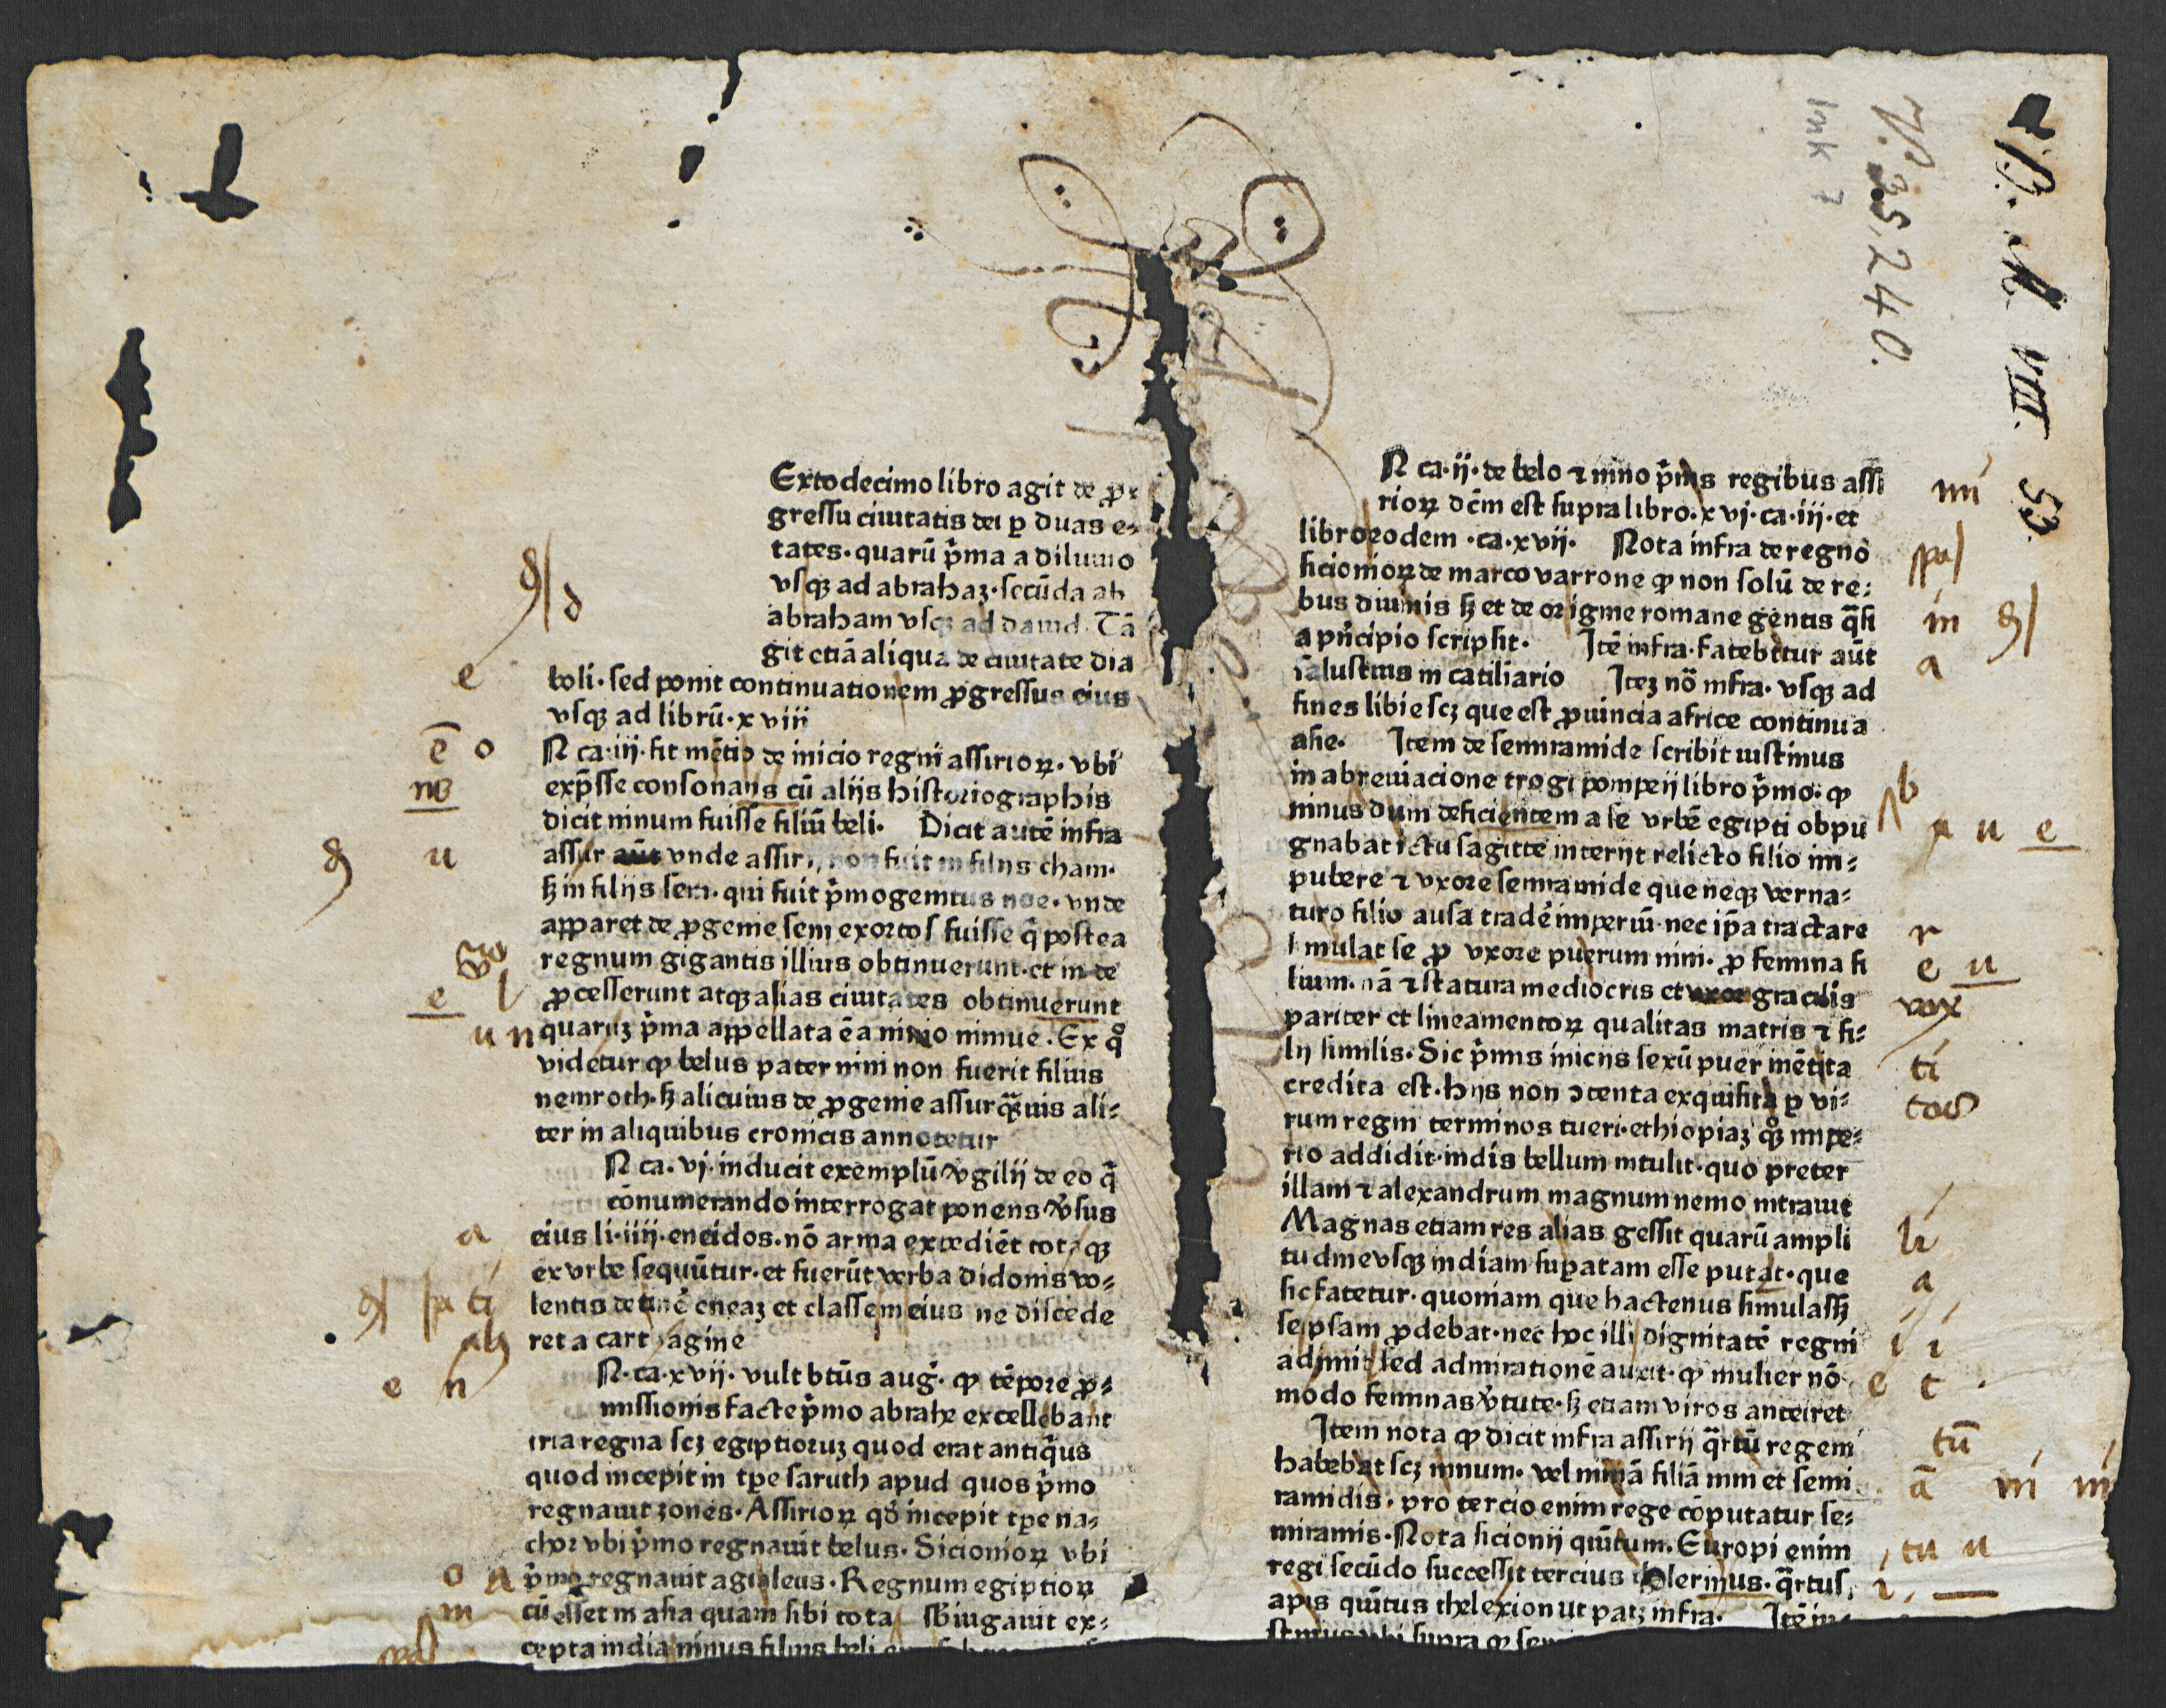 Extodecimo libro agit de ꝓ⸗
gressu ciuitatis dei ꝑ duas e⸗
tates · quarū p̄ma a diluuio
vsqꝫ ad abrahaꝫ · secūda ab
abraham vsqꝫ ad dauid · Tā
git etiā aliqua de ciuitate dia
boli · sed ponit continuationem ꝓgressus eius
vsqꝫ ad librū · xviii
N ca · iij · fit mētio de inicio regni assirioꝝ · vbi
exp̄sse consonans cū alijs historiographis
dicit ninum fuisse filiū beli · Dicit autē infra
assur aūt vnde assirij non fuit in filijs cham ·
sꝫ in filijs sem · qui fuit p̄mogenitus noe · vnde
apparet de ꝓgenie sem exortos fuisse q̄ postea
regnum gigantis illius obtinuerunt · et in de
ꝓcesserunt atqꝫ alias ciuitates obtinuerunt
quaruꝫ p̄ma appellata ē a ninio niniue · Ex qͦ
videtur ꝙ belus pater nini non fuerit filius
nemroth · sꝫ alicuius de ꝓgenie assur qꝫuis ali⸗
ter in aliquibus cronicis annotetur
N ca · vj · inducit exemplū v̄gilij de eo q̄
cōnumerando interrogat ponens v̄sus
eius li · iiij · eneidos · nō arma expediēt totaqꝫ
ex vrbe sequūtur · et fuerūt verba didonis vo⸗
lentis detinē eneaꝫ et classem eius ne discede
ret a carthagine
N · ca · xvii · vult btūs auḡ · ꝙ tēpore ꝓ⸗
missionis facte p̄mo abrahe excellebant
tria regna scꝫ egiptioruꝫ quod erat antiq̄us
quod incepit in tꝑe saruth apud quos p̄mo
regnauit zones · Assirioꝝ qd̄ incepit tꝑe na⸗
chor vbi p̄mo regnauit belus · Sicionioꝝ vbi
p̄mo regnauit agialeus · Regnum egiptioꝝ
cū esset in asia quam sibi tota sbiugauit ex⸗
cepta india ninus filius beli
N ca · ij · de belo ⁊ nino p̄mis regibus assi
rioꝝ dc̄m est supra libro · xvj · ca · iij · et
libro eodem · ca · xvij · Nota infra de regno
sicionioꝝ de marco varrone ꝙ non solū de re⸗
bus diuinis sꝫ et de origine romane gentis q̄si
a pn̄cipio scripsit · Itē infra · Fatebitur aūt
salustius in catiliario Iteꝫ nō infra · vsqꝫ ad
fines libie scꝫ que est ꝓuincia africe continua
asie · Item de semiramide scribit iustinus
in abreuiacione trogi pompeij libro p̄mo · ꝙ
ninus dum deficientem a se vrbē egipti obpu
gnabat ictu sagitte interijt relicto filio im⸗
pubere ⁊ vxore semiramide que neqꝫ verna⸗
turo filio ausa tradē imperiū · nec ip̄a tractare
simulat se ꝓ vxore puerum nini · ꝓ femina fi
lium · nā ⁊ statura mediocris et vxor gracilis
pariter et lineamentoꝝ qualitas matris ⁊ fi⸗
lij similis · Sic p̄mis inicijs sexū puer mētita
credita est · hijs non ↄtenta exquisita ꝑ vi⸗
rum regni terminos tueri · ethiopiaꝫ qꝫ impe⸗
rio addidit · indis bellum intulit · quo preter
illam ⁊ alexandrum magnum nemo intrauit
Magnas etiam res alias gessit quarū ampli
tudine vsqꝫ indiam suꝑatam esse putat · que
sic fatetur · quoniam que hactenus simulassꝫ
seipsam ꝓdebat · nec hoc illi dignitatē regni
adimit sed admirationē auxit · ꝙ mulier nō
modo feminas v̄tute · sꝫ etiam viros anteiret
Item nota ꝙ dicit infra assirij q̄rtū regem
habebat scꝫ ninum · vel niniā filiā nini et semi
ramidis · pro tercio enim rege cōputatur se⸗
miramis · Nota sicionij quītum · Europi enim
regi secūdo successit tercius · q̄rtus
apis quītus thelexion ut patꝫ infra · Itē iu⸗
stinus vbi supra ꝙ
35,240.
VIII. 53
Ink 7